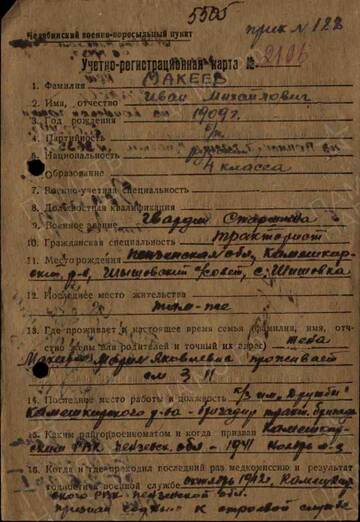 5505
Челябинский военно-пересыльный пункт
прик № 122
Учетно-регистрационная карта № 2106
1. Фамилия МАКЕЕВ
2. Имя, отчество Иван Михайлович
3. Год рождения 1909 г.
4. Партийность б/п
5. Национальность
6. Образование 4 класса
7. Военно-учетная специальность
8. Должностная квалификация
9. Военное звание Гвардии Старшина
10. Гражданская специальность тракторист
11. Место рождения Пензенская обл, Камешкир-
ский р-н, Шишовский с/совет, с. Шишовка
12. Последнее место жительства
там-же
13. Где проживает в настоящее время семья (фамилия, имя, отче-
ство жены или родителей и точный их адрес) жена
Макеева Мария Яковлевна проживает
см 3 11
14. Последнее место работы и должность к/з им. Дружба
Камешкирского р-на - бригадир тракт. бригады
15. Каким райгорвоенкоматом и когда призван Камешкир-
ским РВК Пензен. обл. - 1941 ноябрь м-ц
16. Когда и где проходил последний раз медкомиссию и результат
годности военной службе октябрь 1942, Камешкир-
ского РВК Пензенской обл.
признан годным к строевой службе